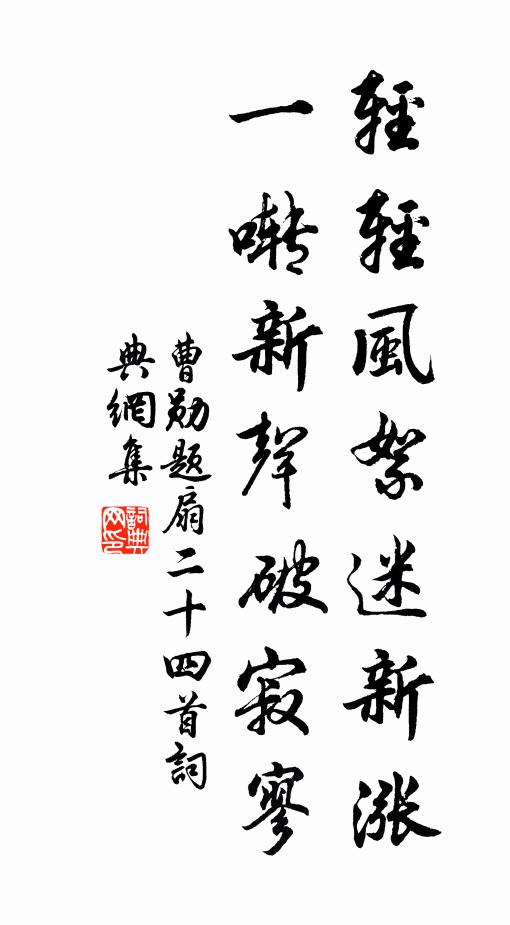 輕輕風絮迷新漲
一囀新聲破寂寥
曹勛題扇二十四首詞
典網集
詞典
网印